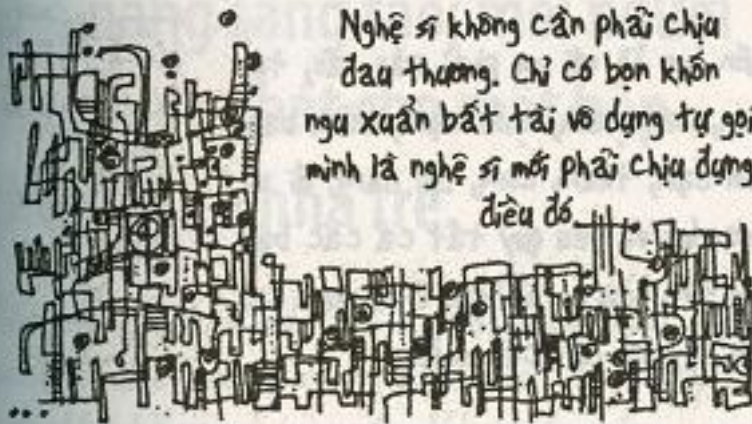 Nghệ sĩ không cần phải chịu
đau thương. Chỉ có bọn khốn
ngu xuẩn bất tài vô dụng tự gọi
mình là nghệ sĩ mới phải chịu đựng
điều đó